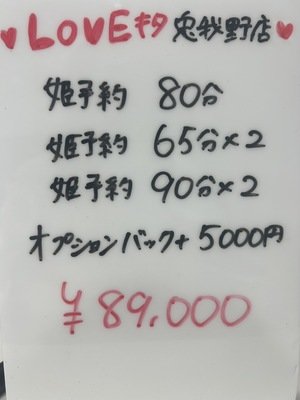 ♥LOVEキタ 兎我野店♥
姫予約 80分
姫予約 65分×2
姫予約 90分×2
オプションバック+5000円
¥89,000